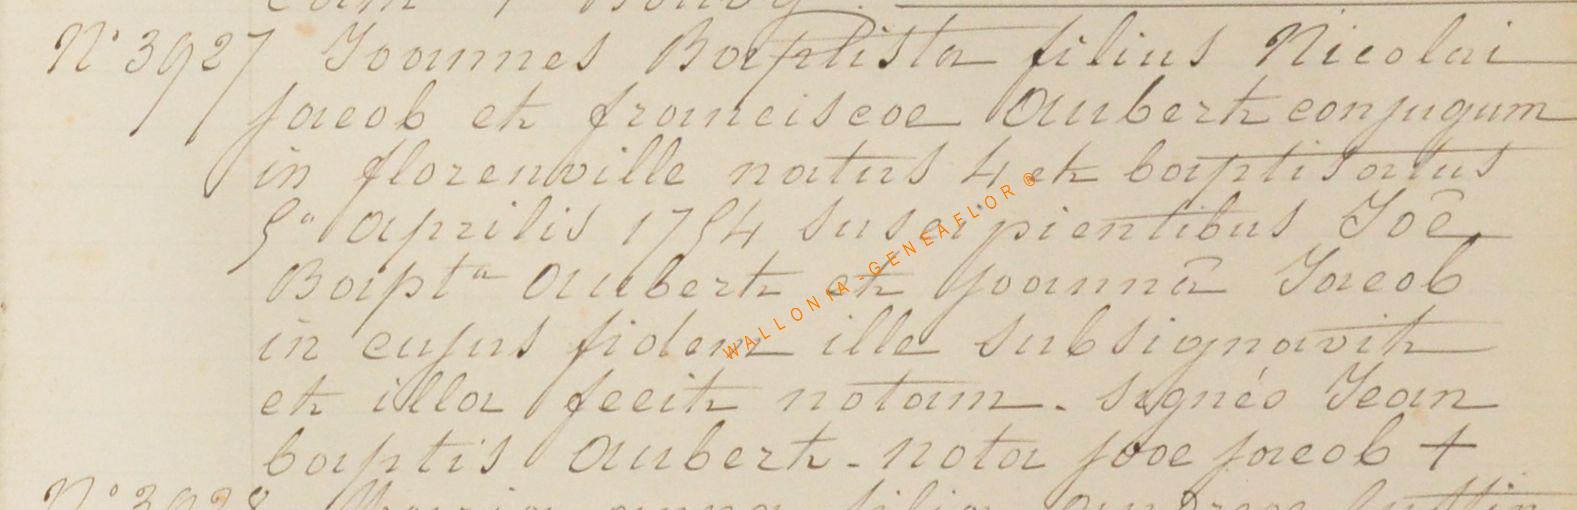 N° 3927 Joannes Baptista filius Nicolai
jacob et franciscae Aubert conjugum
in florenville natus 4 et baptisatus
5a aprilis 1754 suscipientibus Joê
Baptta Aubert et joannâ Jacob
in cujus fidem ille subsignavit
et illa fecit notam. signés Jean
baptis Aubert. nota joae jacob +
N° 3928 Maria anna filia andreae
WALLONIA-GENEAFLOR ®